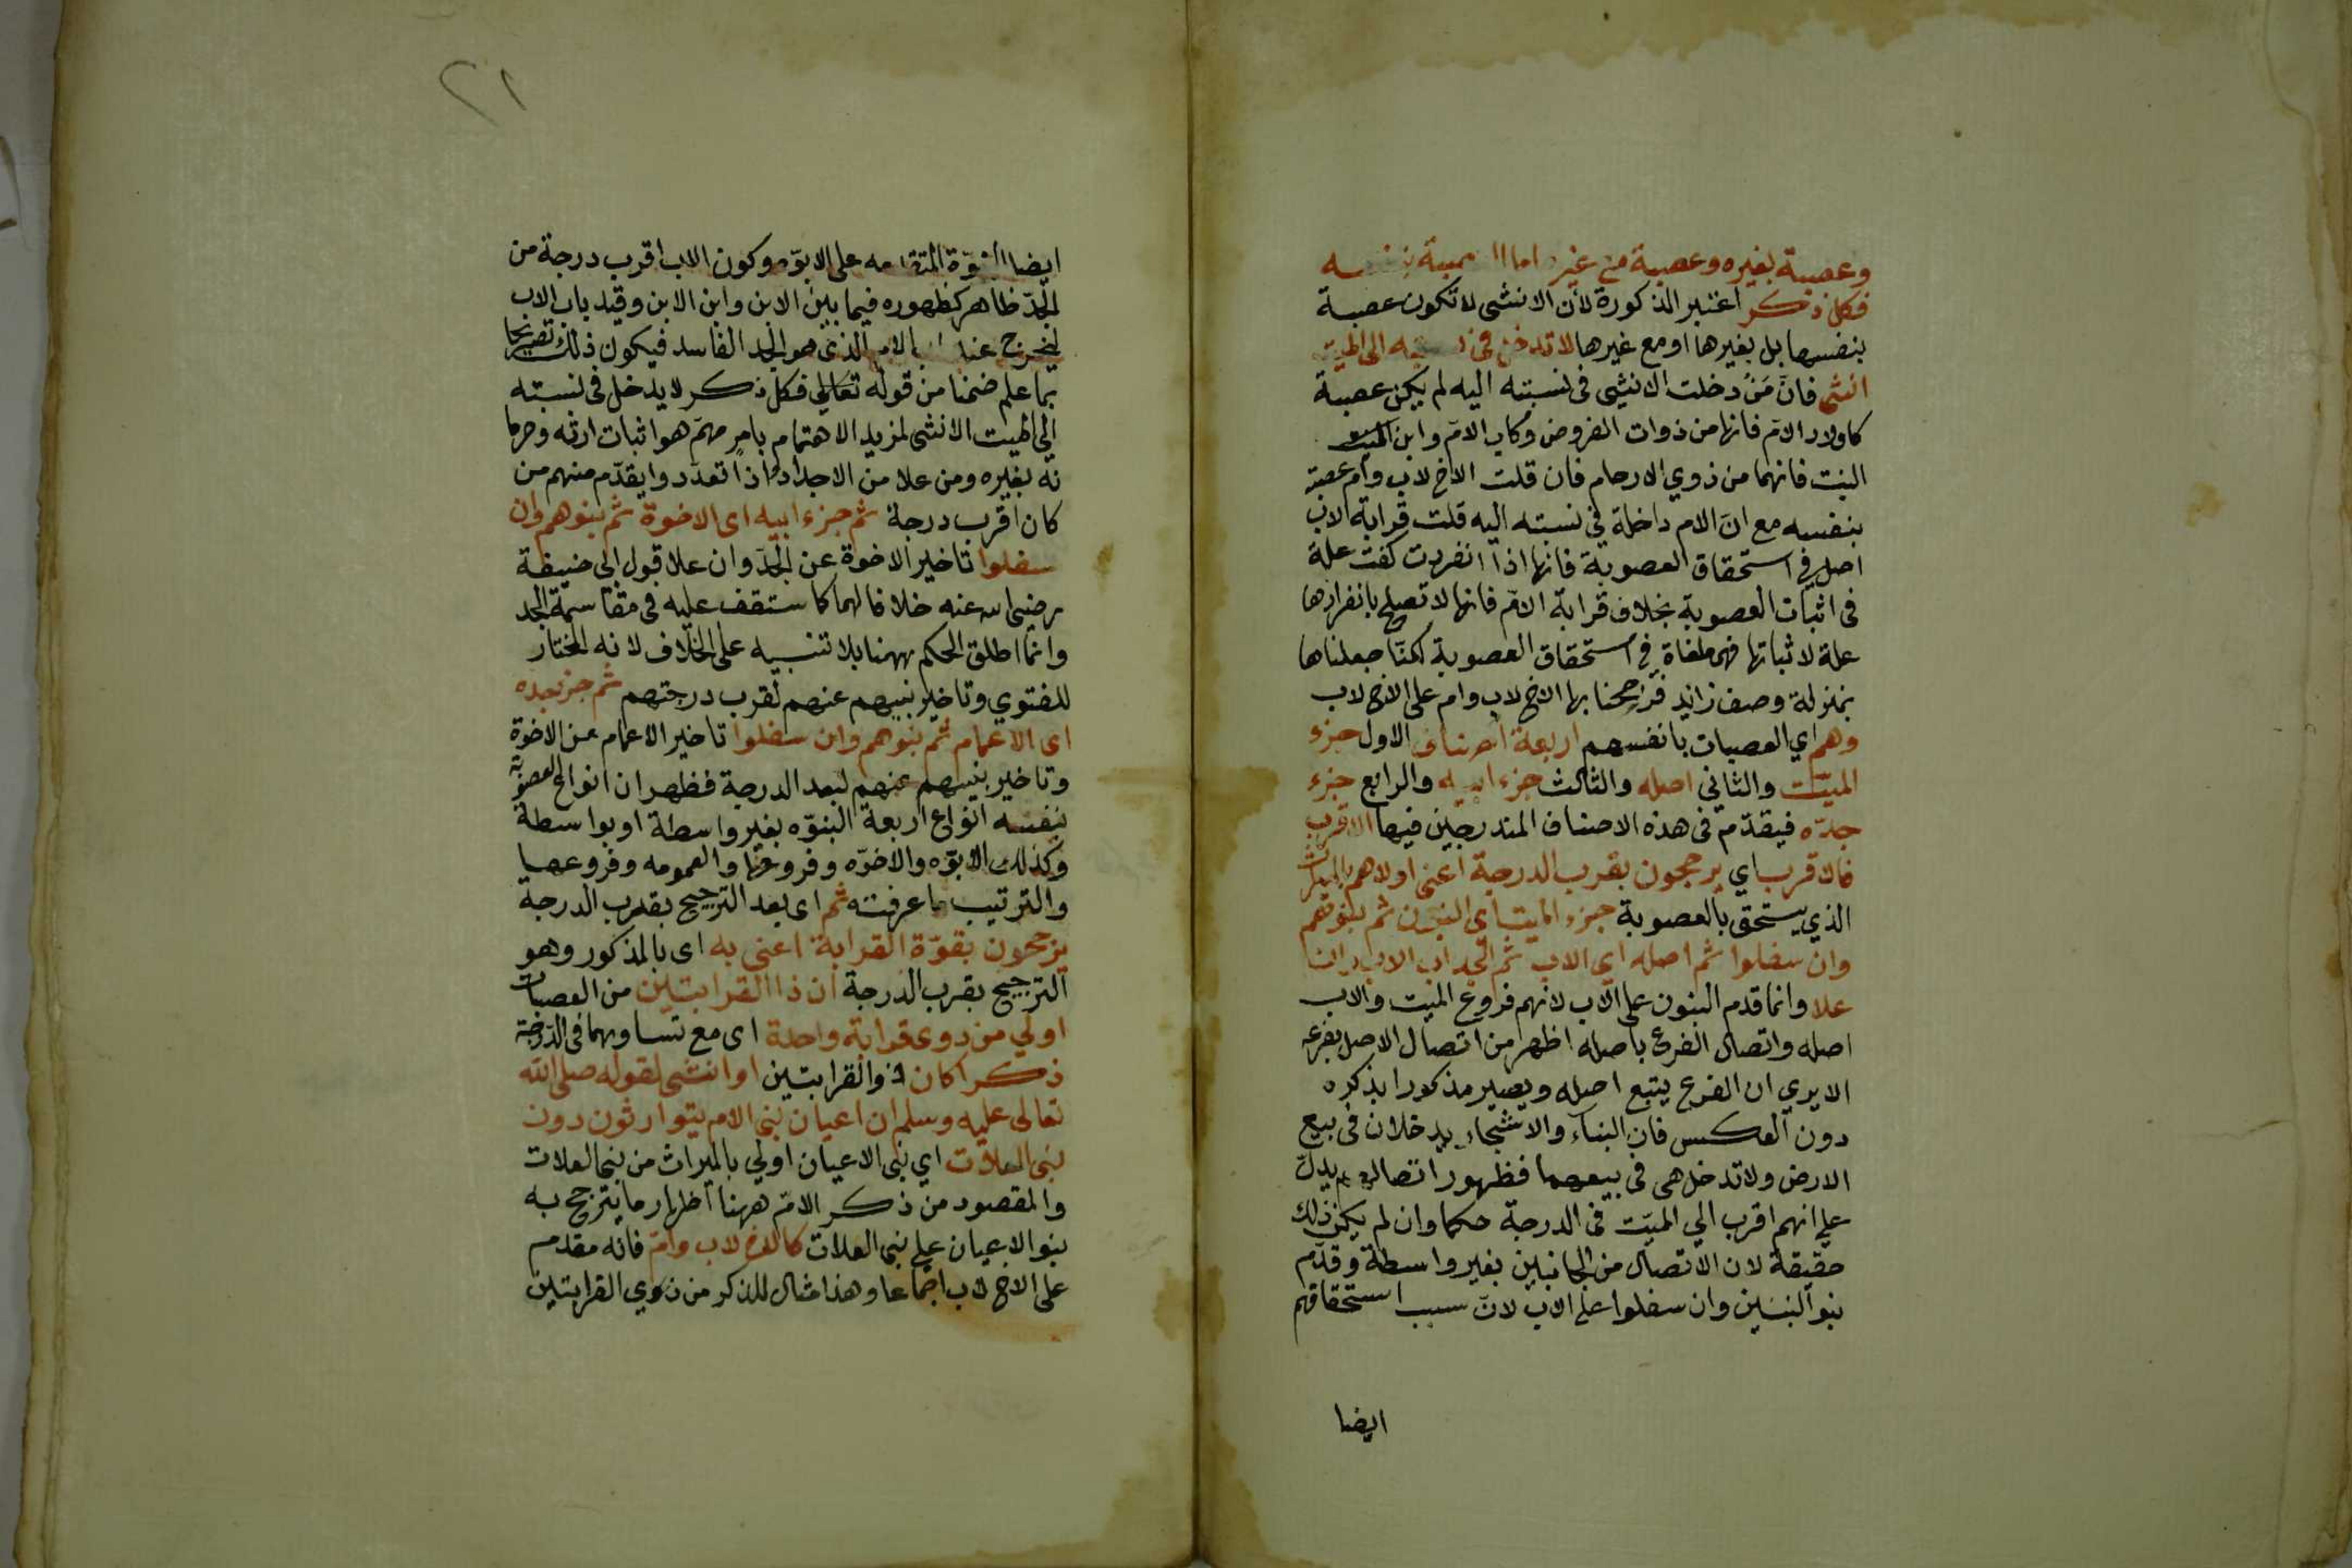 وعصبة بغيره وعصبة مع غيره اما العصبة بنفسه
فكل ذكر اعتبر الذكورة لان الانثى لا تكون عصبة
بنفسها بل بغيرها او مع غيرها لا تدخل في نسبته الى الميت
انثى فانّ مَن دخلت الانثى في نسبته اليه لم يكن عصبة
كاولاد الامّ فانها من ذوات الفروض وكاب الامّ وابن
البنت فانهما من ذوي الارحام فان قلت الاخ لاب وام عصبة
بنفسه مع انّ الام داخلة في نسبته اليه قلت قرابة الاب
اصل في استحقاق العصوبة فانها اذا انفردت كفت علة
في اثبات العصوبة بخلاف قرابة الامّ فانها لا تصلح بانفرادها
علة لاثباتها فهي ملغاة في استحقاق العصوبة لكنّا جعلناها
بمنزلة وصف زايد فرجحنا بها الاخ لاب وام على الاخ لاب
وهم اي العصبات بانفسهم اربعة اصناف الاول جزء
الميّت والثاني اصله والثالث جزء ابيه والرابع جزء
جدّه فيقدّم في هذه الاصناف المندرجين فيها الاقرب
فالاقرب اي يرجحون بقرب الدرجة اعنى اولاهم بالميراث
الذي يستحق بالعصوبة جزء الميت اي البنون ثم بنوهم
وان سفلوا ثم اصله اي الاب ثم الجد اب الاب وان
علا وانما قدم البنون على الاب لانهم فروع الميت والاب
اصله واتصال الفرع باصله اظهر من اتصال الاصل بفرعه
الا يري ان الفرع يتبع اصله ويصير مذكورا بذكره
دون العكس فان البناء والاشجار يدخلان في بيع
الارض ولا تدخل هي في بيعهما فظهور اتصالهم يدلّ
على انهم اقرب الي الميّت في الدرجة حكما وان لم يكن ذلك
حقيقة لان الاتصال من الجانبين بغير واسطة وقدّم
بنوا البنين وان سفلوا على الاب لانّ سبب استحقاقهم
ايضا
٢١
ايضا البنوّة المتقدمه على الابوّه وكون الاب اقرب درجة من
الجدّ ظاهر كظهوره فيما بين الابن وابن الابن وقيد باب الاب
ليخرج عنه اب الام الذي هو الجد الفاسد فيكون ذلك تصريحا
بما علم ضمنا من قوله تعالي فكل ذكر لا يدخل في نسبته
الي الميت الانثى لمزيد الاهتمام بامر مهمّ هو اثبات ارثه وحرما
نه بغيره ومن علا من الاجداد اذا تعدّدوا يقدّم منهم من
كان اقرب درجة ثم جزء ابيه اى الاخوة ثم بنوهم وان
سفلوا تاخير الاخوة عن الجدّ وان علا قول ابي حنيفة
رضي الله عنه خلافا لهما كما ستقف عليه في مقاسمة الجد
وانما اطلق الحكم ههنا بلا تنبيه على الخلاف لانه المختار
للفتوي وتاخير بنيهم عنهم لقرب درجتهم ثم جزء جده
اى الاعمام ثم بنوهم وان سفلوا تاخير الاعمام عن الاخوة
وتاخير بنيهم عنهم لبعد الدرجة فظهر ان انواع العصوبة
بنفسه انواع اربعة البنوّه بغير واسطة او بواسطة
وكذلك الابوّه والاخوّه وفروعها والعمومه وفروعها
والترتيب ما عرفته ثم اى بعد الترجيح بقرب الدرجة
يرجحون بقوّة القرابة اعني به اى بالمذكور وهو
الترجيح بقرب الدرجة ان ذا القرابتين من العصبات
اولي من ذوى قرابة واحدة اى مع تساويهما في الدّرجة
ذكرا كان ذو القرابتين او انثى لقوله صلى الله
تعالى عليه وسلم ان اعيان بني الام يتوارثون دون
بنى العلات اي بني الاعيان اولي بالميراث من بني العلات
والمقصود من ذكر الامّ ههنا اظهار ما يترجح به
بنو الاعيان على بني العلات كالاخ لاب وامّ فانه مقدم
على الاخ لاب اجماعا وهذا مثال للذكر من ذوي القرابتين